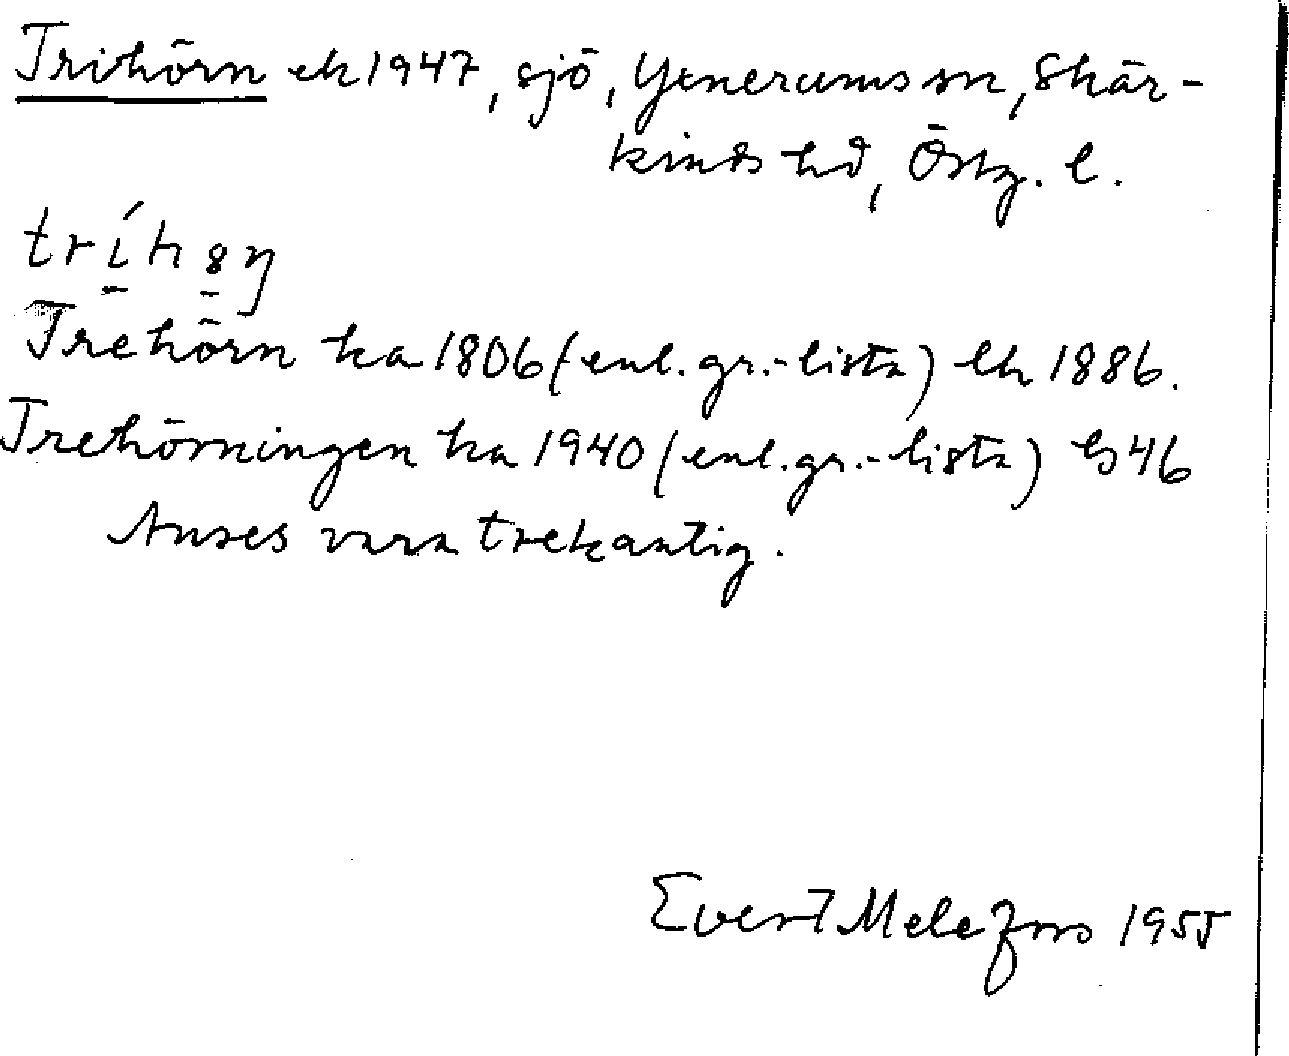 Trihörn ek 1947, sjö, Yxnerums sn, Skär-
kinds hd, Östg. l.
Trehörn ka 1806 (enl. gr.-lista) Ek 1886.
Trehörningen ka 1940 (enl. gr.-lista) 46
Anses vara trekantig.
Evert Melefors 1955